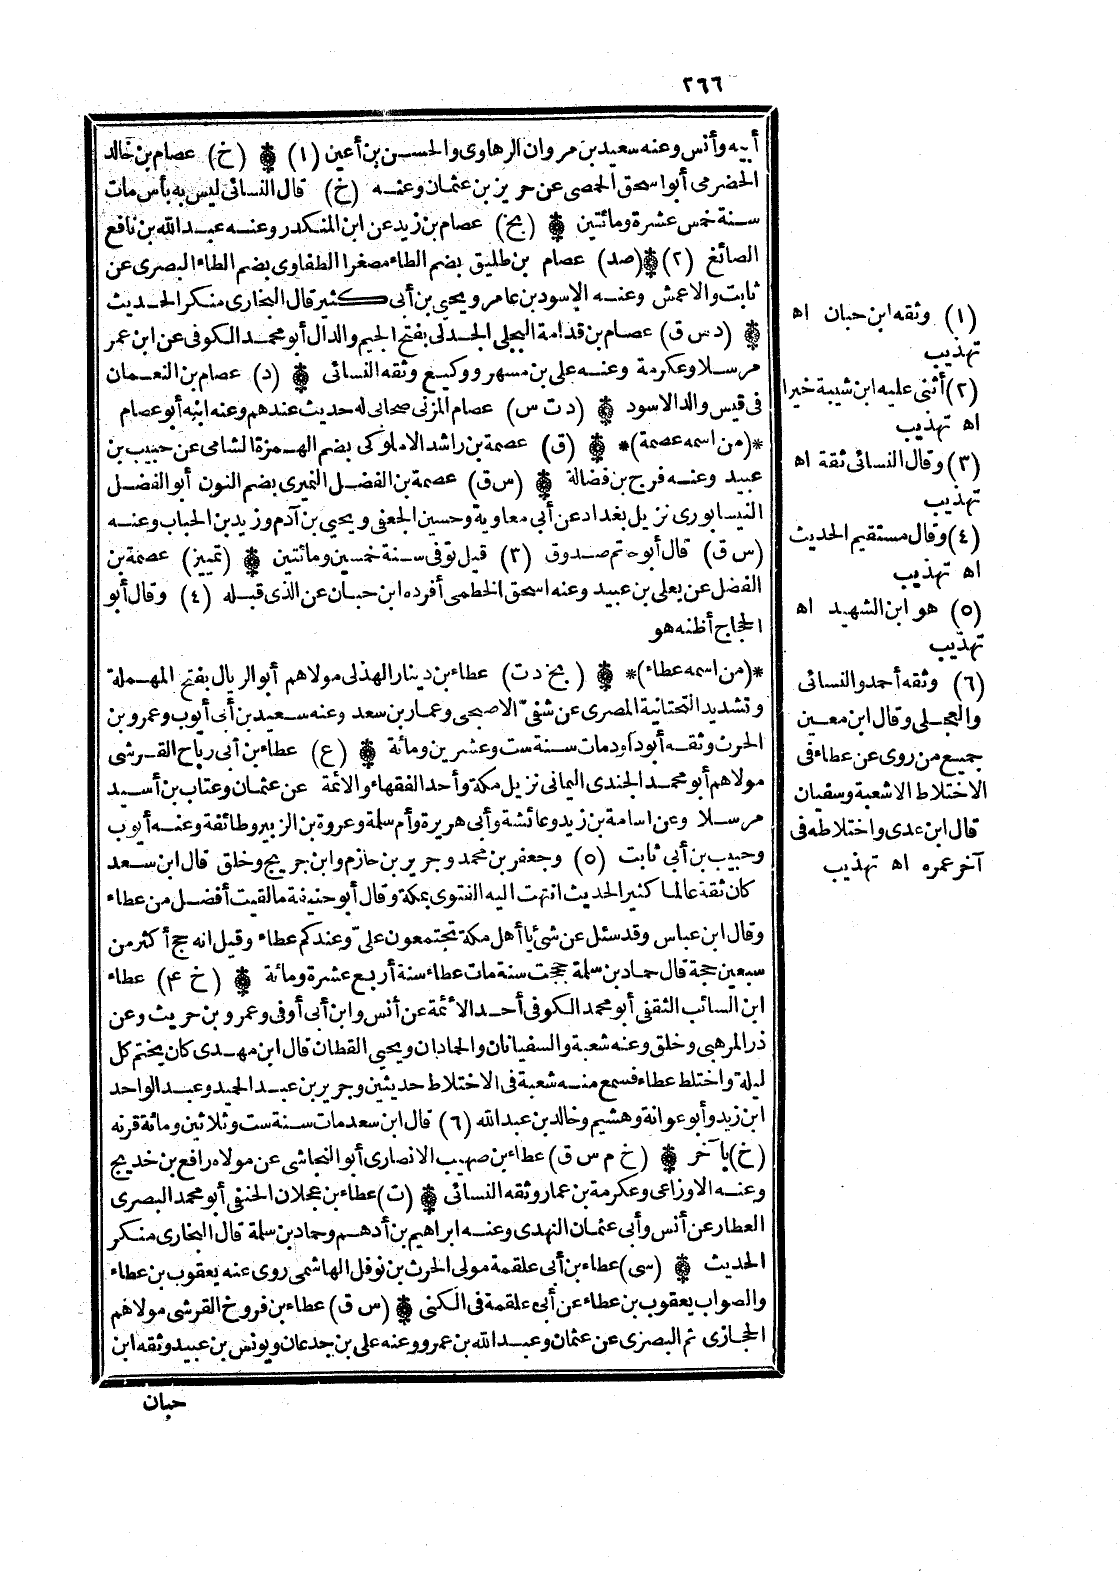 ٢٦٦
أبيه وأنس وعنه سعيد بن مروان الرهاوى والحسن بن أعين (١) ۞ (خ) عصام بن خالد
الحضرمى أبو اسحق الحمصى عن حريز بن عثمان وعنه (خ) قال النسائى ليس به بأس مات
سنة خمس عشرة ومائتين ۞ (بخ) عصام بن زيد عن ابن المنكدر وعنه عبد الله بن نافع
الصائغ (٢) ۞ (صد) عصام بن طليق بضم الطاء مصغرا الطفاوى بضم الطاء البصرى عن
ثابت والاعمش وعنه الاسود بن عامر ويحيى بن أبى كثير قال البخارى منكر الحديث
۞ (د س ق) عصام بن قدامة البجلى الجدلى بفتح الجيم والدال أبو محمد الكوفى عن ابن عمر
مرسلا وعكرمة وعنه على بن مسهر ووكيع وثقه النسائى ۞ (د) عصام بن النعمان
فى قيس والد الاسود ۞ (د ت س) عصام المزنى صحابى له حديث عندهم وعنه ابنه أبو عصام
*(من اسمه عصمة)* ۞ (ق) عصمة بن راشد الاملوكى بضم الهمزة الشامى عن حبيب بن
عبيد وعنه فرج بن فضالة ۞ (س ق) عصمة بن الفضل النميرى بضم النون أبو الفضل
النيسابورى نزيل بغداد عن أبى معاوية وحسين الجعفى ويحيى بن آدم وزيد بن الحباب وعنه
(س ق) قال أبو حاتم صدوق (٣) قيل توفى سنة خمسين ومائتين ۞ (تمييز) عصمة بن
الفضل عن يعلى بن عبيد وعنه اسحق الخطمى أفرده ابن حبان عن الذى قبله (٤) وقال أبو
الحجاج أظنه هو
*(من اسمه عطاء)* ۞ (بخ د ت) عطاء بن دينار الهذلى مولاهم أبو الريال بفتح المهملة
وتشديد التحتانية المصرى عن شفىّ الاصبحى وعمار بن سعد وعنه سعيد بن أبى أيوب وعمرو بن
الحرث وثقه أبو داود مات سنة ست وعشرين ومائة ۞ (ع) عطاء بن أبى رباح القرشى
مولاهم أبو محمد الجندى اليمانى نزيل مكة وأحد الفقهاء والائمة عن عثمان وعتاب بن أسيد
مرسلا وعن اسامة بن زيد وعائشة وأبى هريرة وأم سلمة وعروة بن الزبير وطائفة وعنه أيوب
وحبيب بن أبى ثابت (٥) وجعفر بن محمد وجرير بن حازم وابن جريج وخلق قال ابن سعد
كان ثقة عالما كثير الحديث انتهت اليه الفتوى بمكة وقال أبو حنيفة ما لقيت أفضل من عطاء
وقال ابن عباس وقد سئل عن شئ يا أهل مكة تجتمعون علىّ وعندكم عطاء وقيل انه حج أكثر من
سبعين حجة قال حماد بن سلمة حججت سنة مات عطاء سنة أربع عشرة ومائة ۞ (خ ۴) عطاء
ابن السائب الثقفى أبو محمد الكوفى أحد الأئمة عن أنس وابن أبى أوفى وعمرو بن حريث وعن
ذر المرهبى وخلق وعنه شعبة والسفيانان والحمادان ويحيى القطان قال ابن مهدى كان يختم كل
ليلة واختلط عطاء فسمع منه شعبة فى الاختلاط حديثين وجرير بن عبد الحميد وعبد الواحد
ابن زيد وأبو عوانة وهشيم وخالد بن عبد الله (٦) قال ابن سعد مات سنة ست وثلاثين ومائة قرنه
(خ) بآخر ۞ (خ م س ق) عطاء بن صهيب الانصارى أبو النجاشى عن مولاه رافع بن خديج
وعنه الاوزاعى وعكرمة بن عمار وثقه النسائى ۞ (ت) عطاء بن عجلان الحنفى أبو محمد البصرى
العطار عن أنس وأبى عثمان النهدى وعنه ابراهيم بن أدهم وحماد بن سلمة قال البخارى منكر
الحديث ۞ (سى) عطاء بن أبى علقمة مولى الحرث بن نوفل الهاشمى روى عنه يعقوب بن عطاء
والصواب يعقوب بن عطاء عن أبى علقمة فى الكنى ۞ (س ق) عطاء بن فروخ القرشى مولاهم
الحجازى ثم البصرى عن عثمان وعبد الله بن عمرو وعنه على بن جدعان ويونس بن عبيد وثقه ابن
حبان
(١) وثقه ابن حبان اه
تهذيب
(٢) أثنى عليه ابن شيبة خيرا
اه تهذيب
(٣) وقال النسائى ثقة اه
تهذيب
(٤) وقال مستقيم الحديث
اه تهذيب
(٥) هو ابن الشهيد اه
تهذيب
(٦) وثقه أحمد والنسائى
والعجلى وقال ابن معين
جميع من روى عن عطاء فى
الاختلاط الا شعبة وسفيان
قال ابن عدى واختلاطه فى
آخر عمره اه تهذيب